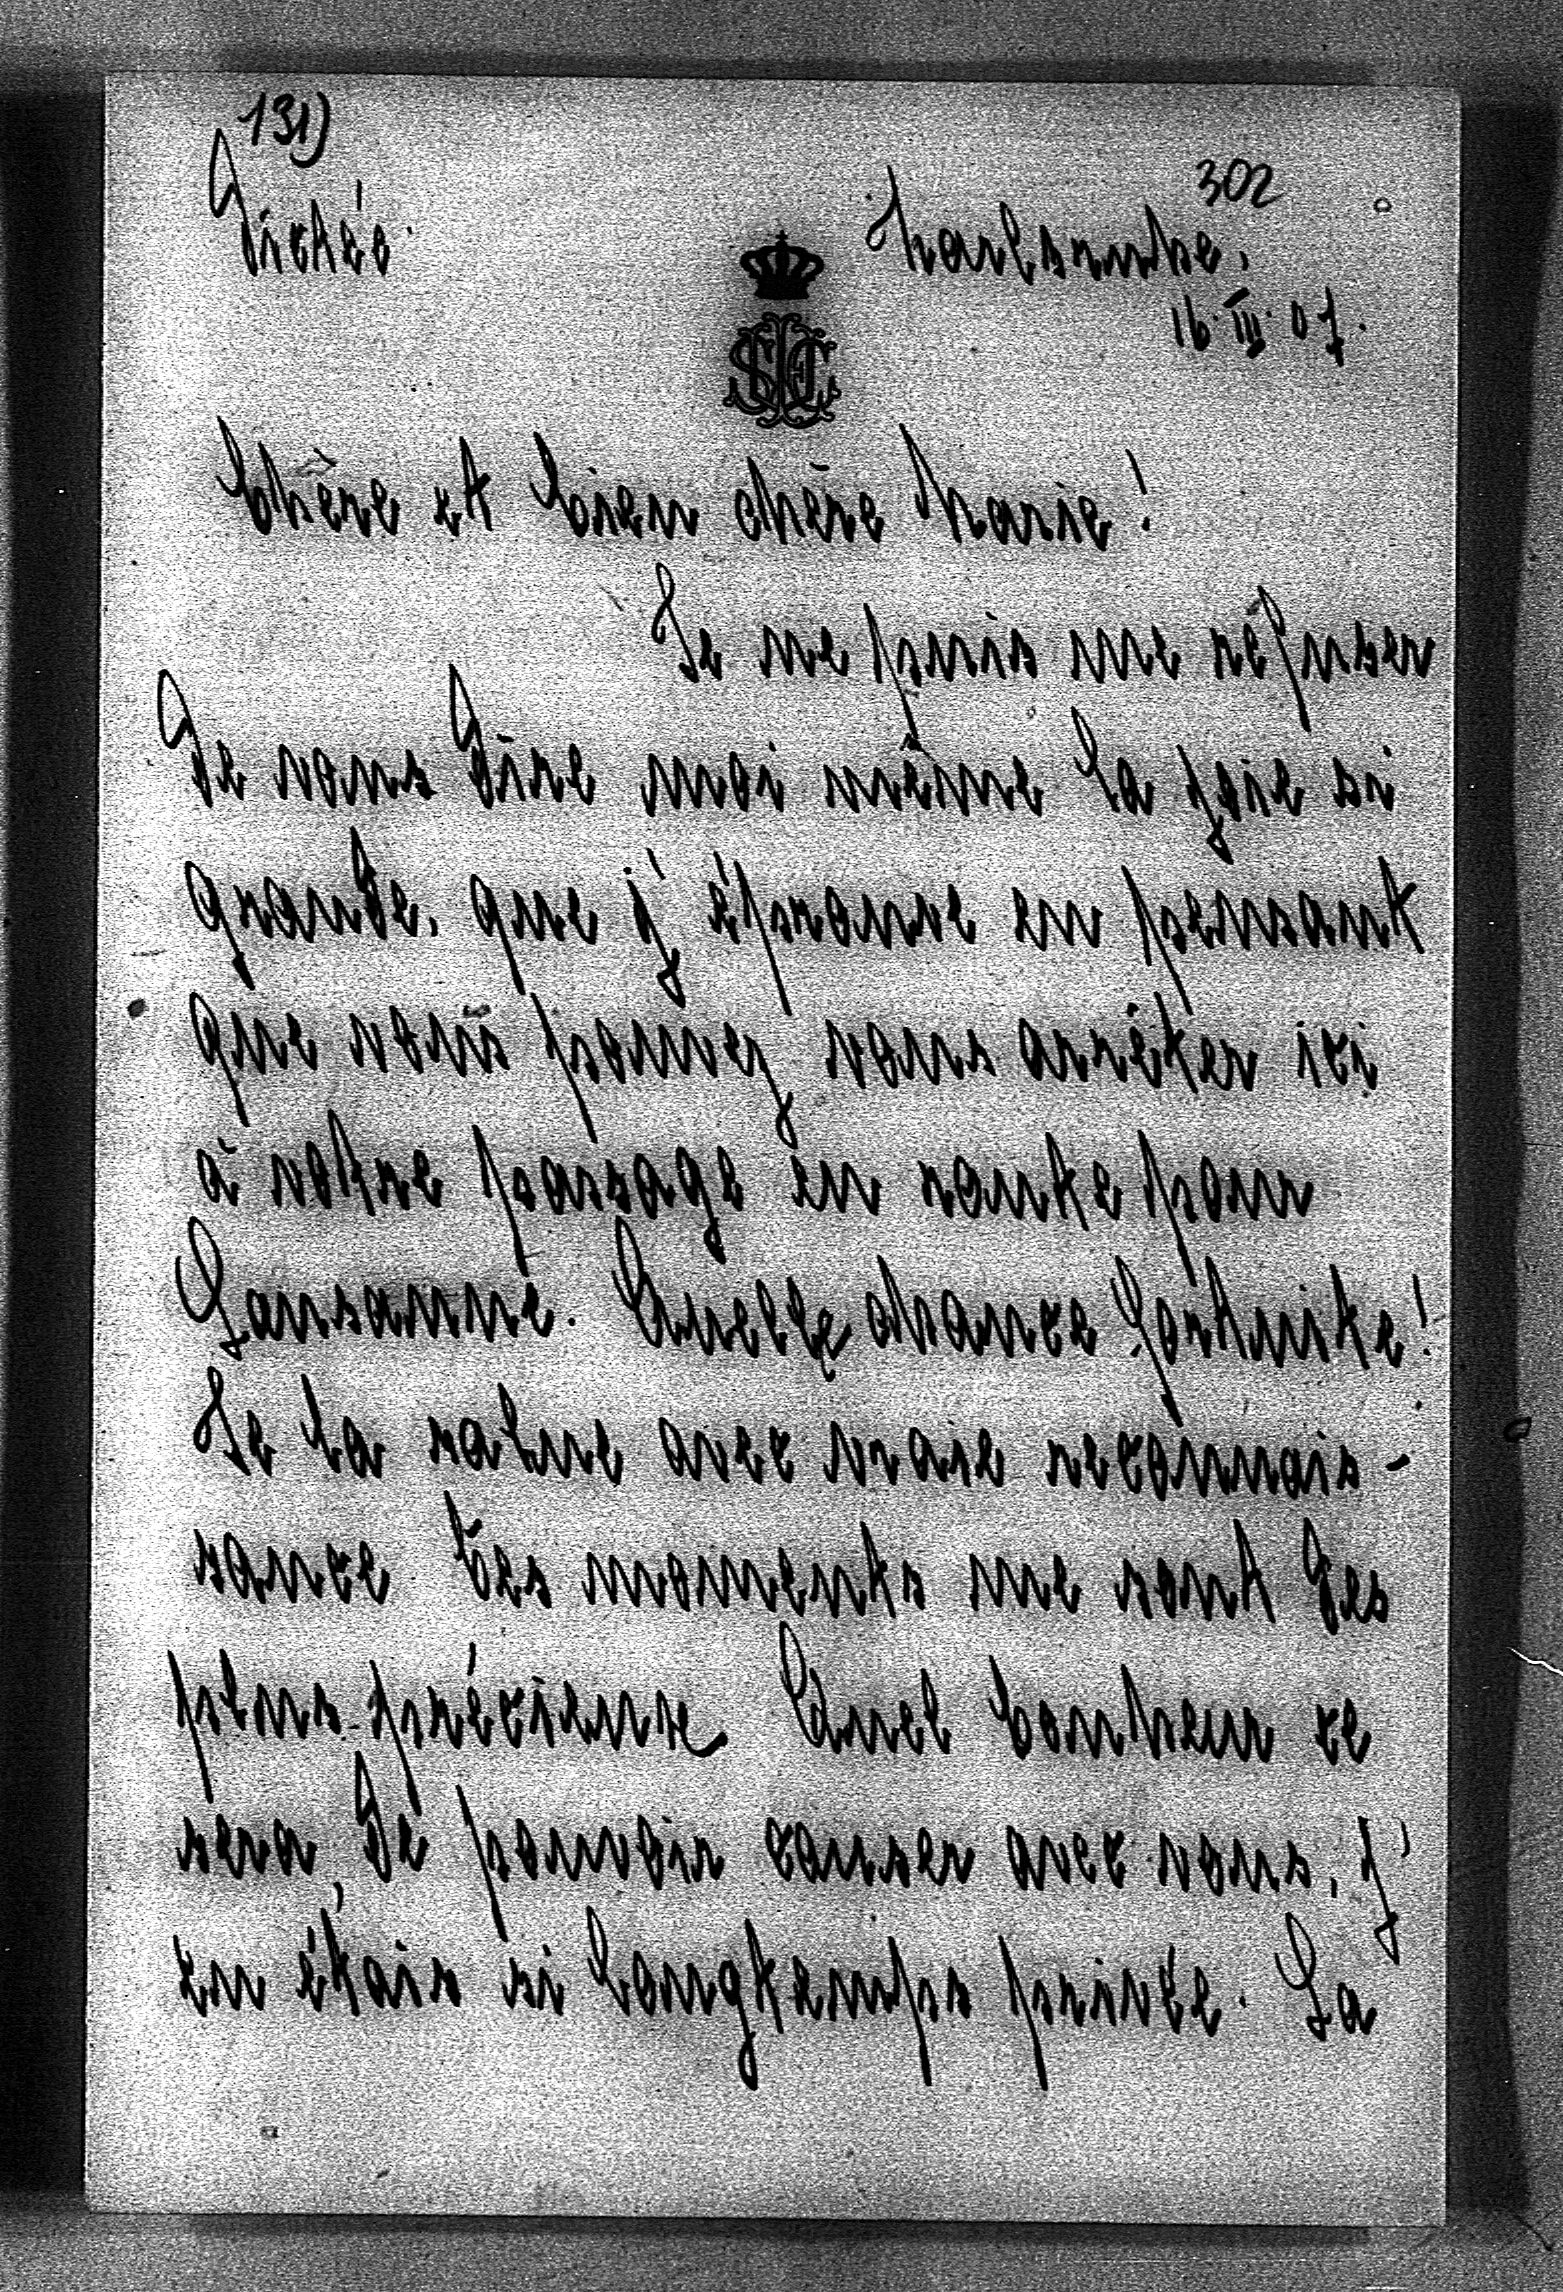 131)
302
Dictée.
Karlsruhe,
16. III. 07.
Chère et bien chère Marie!
Je ne puis me refuser
de vous dire moi même la joie si
grande, que j'éprouve en pensant
que vous pouvez vous arrêter ici
à votre passage en route pour
Lausanne. Quelle chance fortuite!
Je la salue avec vraie reconnais-
sance Ces moments me sont des
plus précieux Quel bonheur ce
sera de pouvoir causer avec vous, j'
en étais si longtemps privée. La